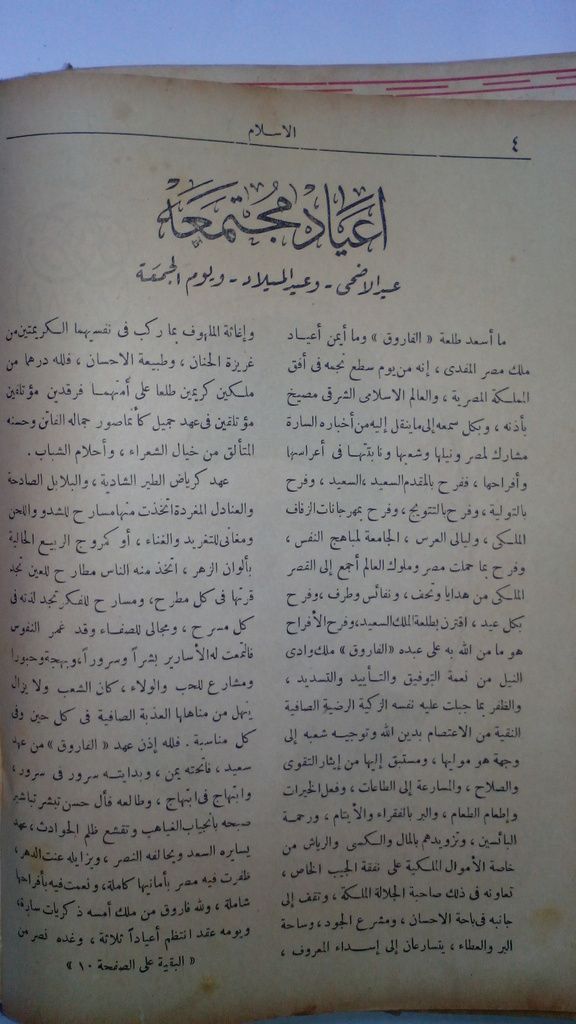 الاسلام
٤
اعياد مجتمعة
عيد الاضحى - وعيد الميلاد - ويوم الجمعة
ما أسعد طلعة « الفاروق » وما أيمن أعياد
ملك مصر المفدى ، إنه من يوم سطع نجمه فى أفق
المملكة المصرية ، والعالم الاسلامى الشرقى مصيخ
بأذنه ، وبكل سمعه إلى ما ينقل إليه من أخباره السارة
مشارك لمصر ونيلها وشعبها ونابتتها فى أعراسها
وأفراحها ، ففرح بالمقدم السعيد ، السعيد ، وفرح
بالتولية ، وفرح بالتتويج ، وفرح بمهرجانات الزفاف
الملكى ، وليالى العرس ، الجامعة لمباهج النفس ،
وفرح بما حملت مصر وملوك العالم أجمع إلى القصر
الملكى من هدايا وتحف ، ونفائس وطرف ، وفرح
بكل عيد ، اقترن بطلعة الملك السعيد ، وفرح الأفراح
هو ما من الله به على عبده « الفاروق » ملك وادى
النيل من نعمة التوفيق والتأييد والتسديد ،
والظفر بما جبلت عليه نفسه الزكية الرضية الصافية
النقية من الاعتصام بدين الله وتوجيه شعبه إلى
وجهة هو موليها ، ومستبق إليها من إيثار التقوى
والصلاح ، والمسارعة إلى الطاعات ، وفعل الخيرات
وإطعام الطعام ، والبر بالفقراء والأيتام ، ورحمة
البائسين ، وتزويدهم بالمال والكسى والرياش من
خاصة الأموال الملكية على نفقة الجيب الخاص ،
تعاونه فى ذلك صاحبة الجلالة الملكة ، وتقف إلى
جانبه فى باحة الاحسان ، ومشرع الجود ، وساحة
البر والعطاء ، يتسارعان إلى إسداء المعروف ،
وإغاثة الملهوف بما ركب فى نفسيهما الكريمتين من
غريزة الحنان ، وطبيعة الاحسان ، فلله درهما من
ملكين كريمين طلعا على أمتهما فرقدين مؤتلفين
مؤتلقين فى عهد جميل كأنما صور جماله الفاتن وحسنه
المتألق من خيال الشعراء ، وأحلام الشباب .
عهد كرياض الطير الشادية ، والبلابل الصادحة
والعنادل المغردة اتخذت منها مسارح للشدو واللحن
ومغانى للتغريد والغناء ، أو كمروج الربيع الحالية
بألوان الزهر ، اتخذ منه الناس مطارح للعين تجد
قرتها فى كل مطرح ، ومسارح للفكر تجد لذته فى
كل مسرح ، ومجالى للصفاء وقد غمر النفوس
فالتمعت له الأسارير بشراً وسروراً ، وبهجة وحبورا
ومشارع للحب والولاء ، كان الشعب ولا يزال
ينهل من مناهلها العذبة الصافية فى كل حين وفى
كل مناسبة . فلله إذن عهد « الفاروق » من عهد
سعيد ، فاتحته يمن ، وبدايته سرور فى سرور ،
وابتهاج فى ابتهاج ، وطالعه فأل حسن تبشر تباشير
صبحه بانجياب الغياهب وتقشع ظلم الحوادث ، عهد
يسايره السعد ويحالفه النصر ، ويزايله عنت الدهر ،
ظفرت فيه مصر بأمانيها كاملة ، ونعمت فيه بأفراحها
شاملة ، ولله فاروق من ملك أمسه ذكريات سارة ،
ويومه عقد انتظم أعياداً ثلاثة ، وغده نصر من
« البقية على الصفحة ١٠ »